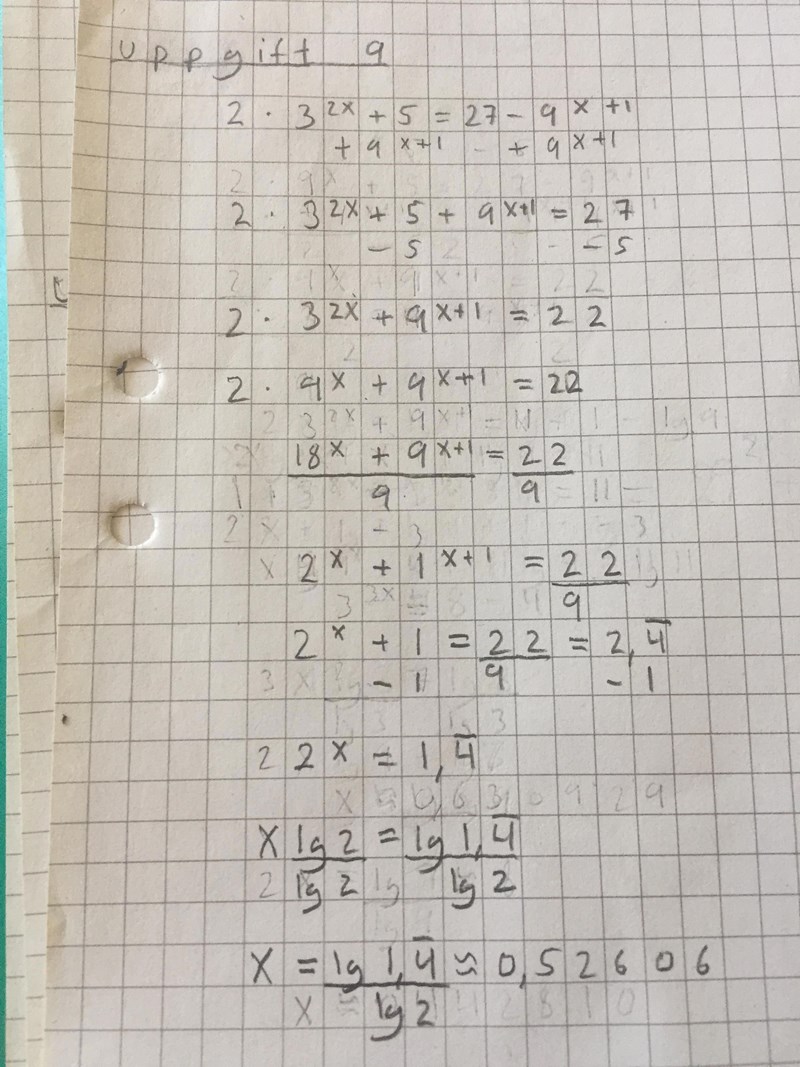 Uppgift 9
2 · 3^2x + 5 = 27 - 9^x+1
+ 9^x+1 - + 9^x+1
2 · 3^2x + 5 + 9^x+1 = 27
- 5 - 5
2 · 3^2x + 9^x+1 = 22
2 · 9^x + 9^x+1 = 22
18^x + 9^x+1 = 22
9 9
2^x + 1^x+1 = 22
9
2^x + 1 = 22 = 2,4̅
- 1 9 - 1
2^x = 1,4̅
x lg 2 = lg 1,4̅
lg 2 lg 2
x = lg 1,4̅ ≈ 0,52606
lg 2